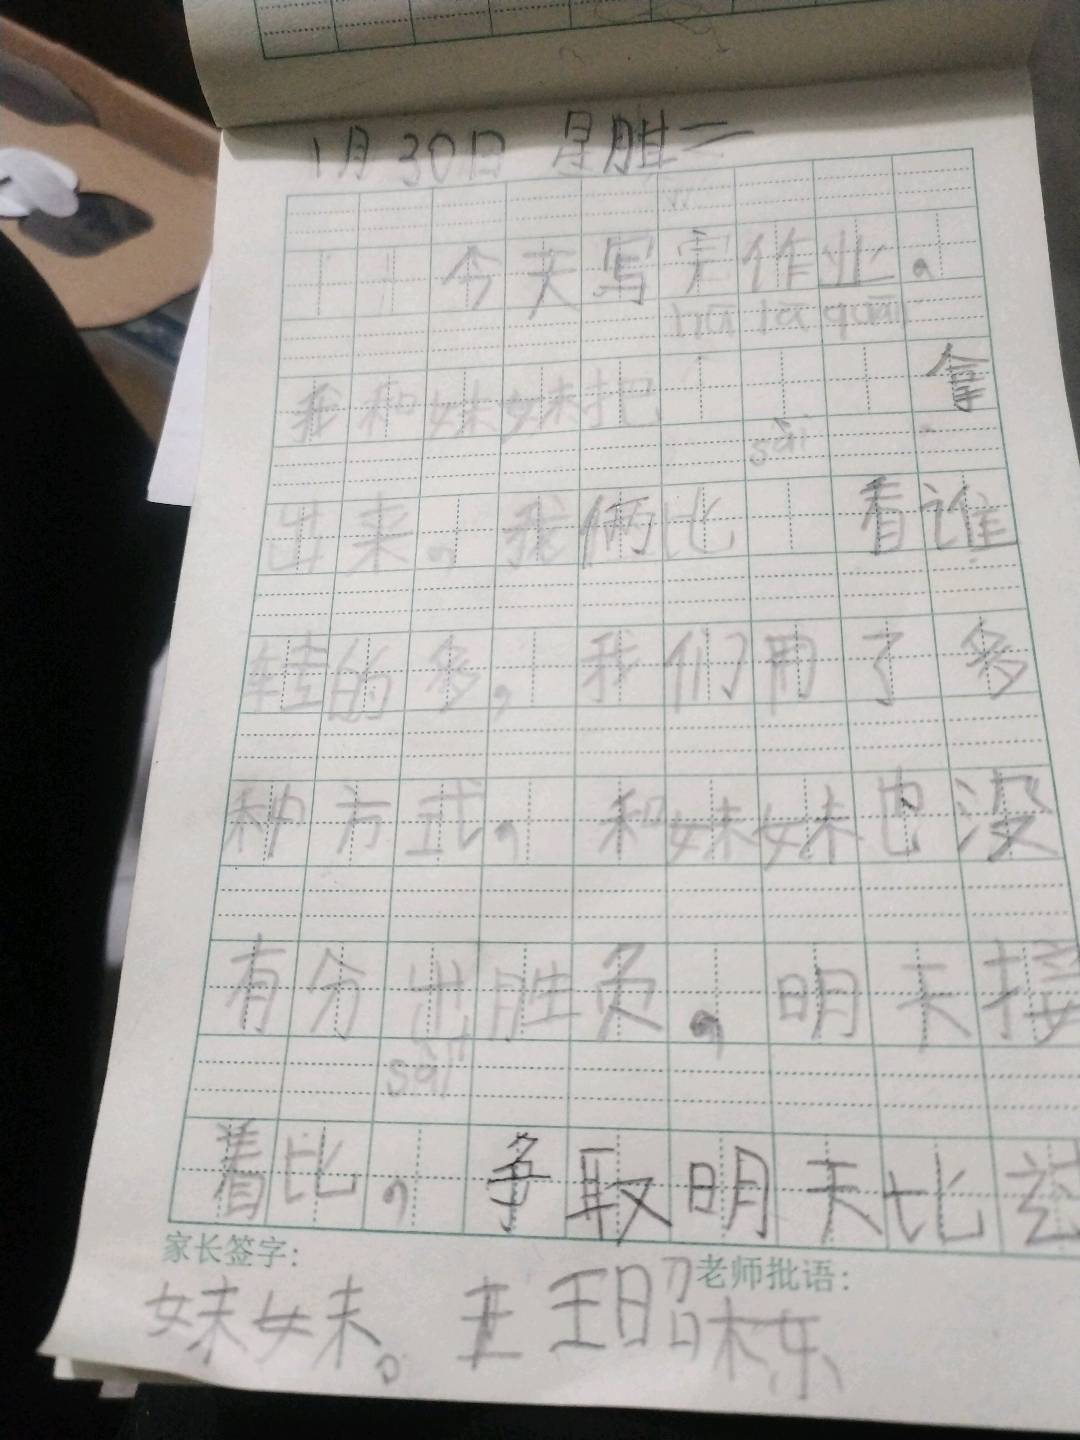 1月30日 星胜二
今天写完作业，
hū lā quān
我和妹妹把 拿
sài
出来，我俩比 看谁
转的多，我们用了多
种方式，和妹妹也没
有分出胜负，明天接
sài
着比，争取明天比过
家长签字： 老师批语：
妹妹。 王昭栋